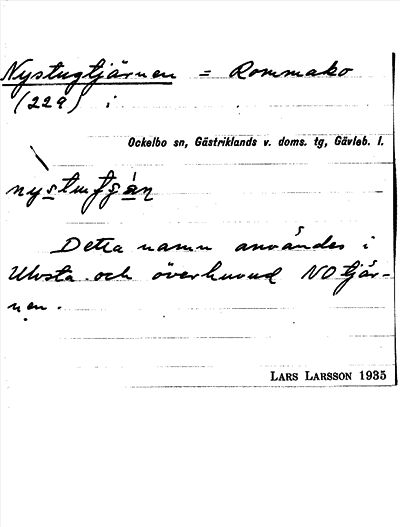 Nystugtjärnen = Rommako
(229) i
Ockelbo sn, Gästriklands v. doms. tg, Gävleb. l.
Detta namn användes i
Ulvsta och överhuvud NO tjär-
nen.
LARS LARSSON 1935